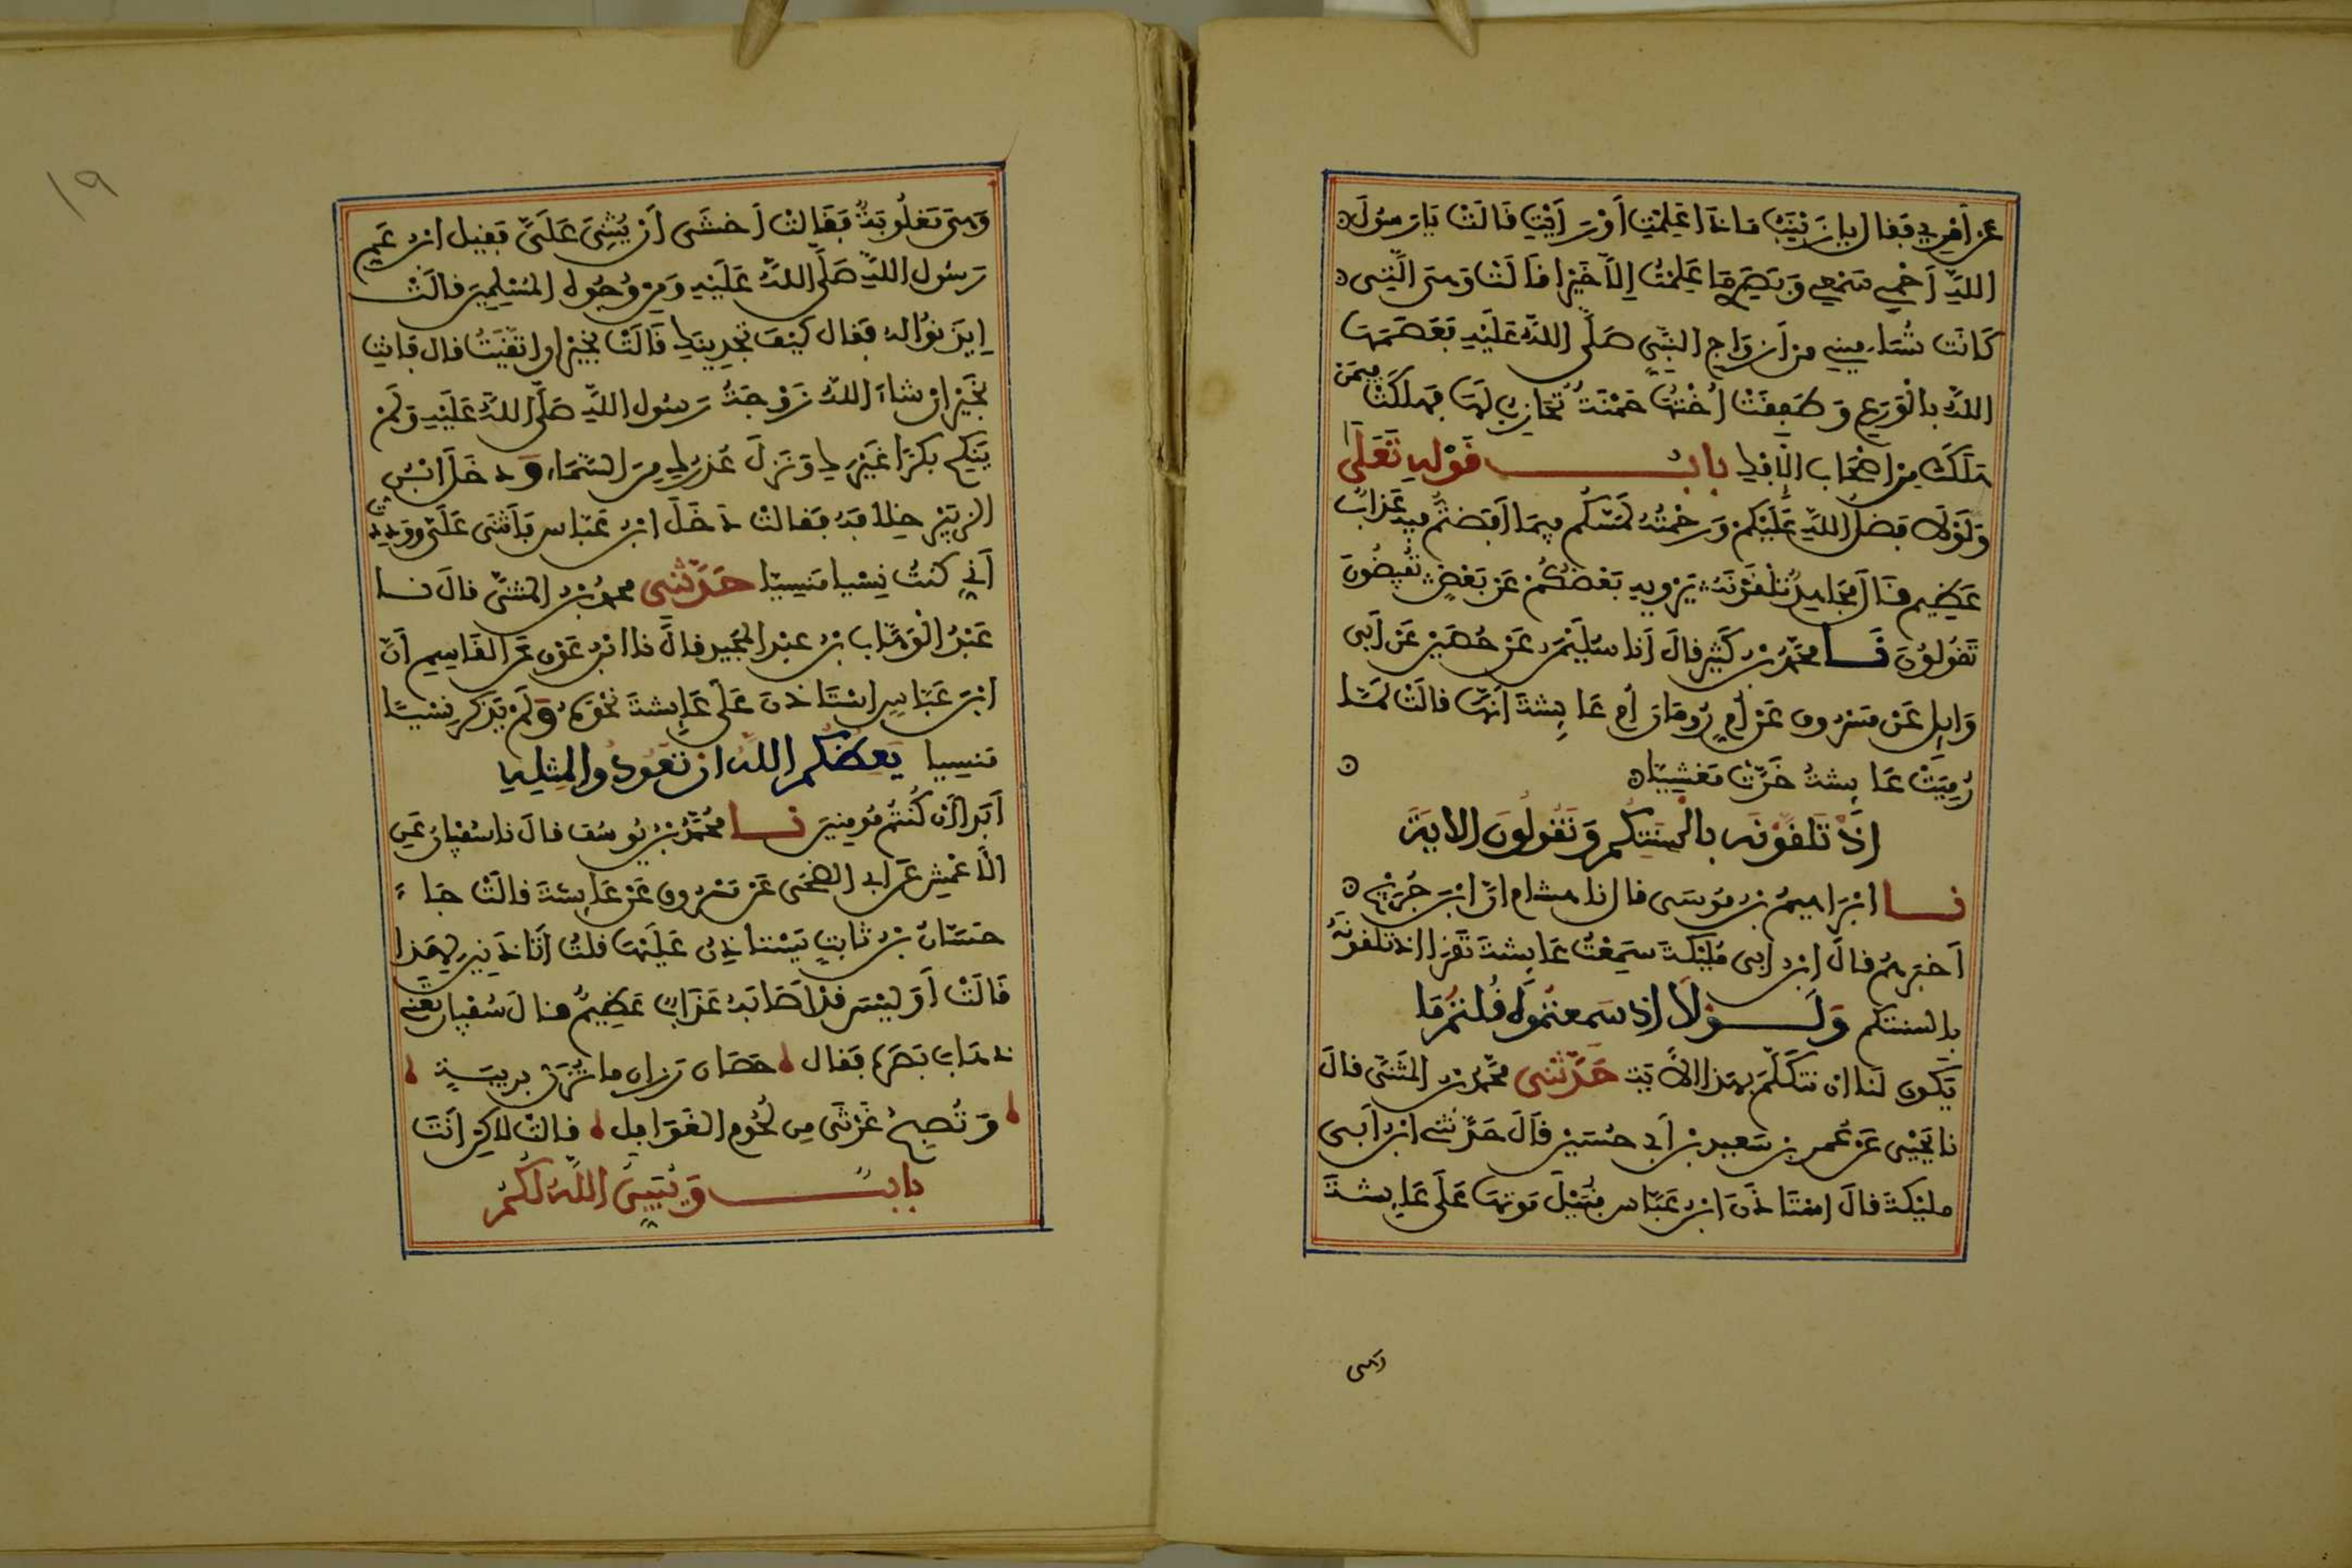 عن أمري فقال يا زينب ماذا علمت أو رأيت قالت يا رسول
الله أحمي سمعي وبصري ما علمت إلا خيرا قالت وهي التي
كانت تساميني من أزواج النبي صلى الله عليه فعصمها
الله بالورع وطفقت أختها حمنة تحارب لها فهلكت فيمن
هلك من أصحاب الإفك باب قوله تعلى
ولولا فضل الله عليكم ورحمته لمسكم فيما أفضتم فيه عذاب
عظيم قال مجاهد تلقونه يرويه بعضكم عن بعض تفيضون
تقولون نا محمد بن كثير قال أنا سليمن عن حصين عن أبي
وايل عن مسروق عن أم رومان أم عايشة أنها قالت لما
رميت عايشة خرت مغشيا
إذ تلقونه بألسنتكم وتقولون الاية
نا إبراهيم بن موسى قال نا هشام ان ابن جريج
أخبرهم قال ابن أبي مليكة سمعت عايشة تقرا إذ تلقونه
بألسنتكم ولولا إذ سمعتموه قلتم ما
يكون لنا ان نتكلم بهذا الاية حدثني محمد بن المثنى قال
نا يحيى عن عمر بن سعيد بن أبي حسين قال حدثني ابن أبي
مليكة قال استاذن ابن عباس قبيل موتها على عايشة
وهي
١٩
وهي مغلوبة فقالت أخشى أن يثني علي فقيل ابن عم
رسول الله صلى الله عليه ومن وجوه المسلمين قالت
ايذنوا له فقال كيف تجدينك قالت بخير إن اتقيت قال فانت
بخير إن شاء الله زوجة رسول الله صلى الله عليه ولم
ينكح بكرا غيرك ونزل عذرك من السماء ودخل ابن
الزبير خلافه فقالت دخل ابن عباس فأثنى علي ووددت
أني كنت نسيا منسيا حدثني محمد بن المثنى قال نا
عبد الوهاب بن عبد المجيد قال نا ابن عون عن القاسم أن
ابن عباس استاذن على عايشة نحوه ولم يذكر نسيا
منسيا يعظكم الله ان تعودوا لمثله
أبدا إن كنتم مومنين نا محمد بن يوسف قال نا سفيان عن
الأعمش عن ابي الضحى عن مسروق عن عايشة قالت جاء
حسان بن ثابت يستاذن عليها قلت أتاذنين لهذا
قالت أو ليس قد أصابه عذاب عظيم قال سفيان تعني
ذهاب بصره فقال حصان رزان ما تزن بريبة
وتصبح غرثى من لحوم الغوافل قالت لاكن أنت
باب ويبين الله لكم